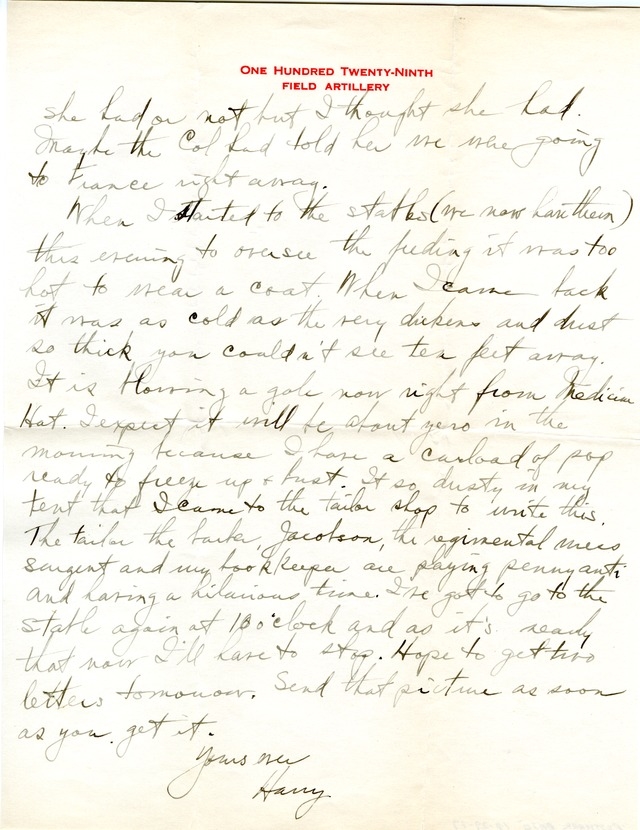 ONE HUNDRED TWENTY-NINTH
FIELD ARTILLERY
she had or not but I thought she had.
Maybe the Col had told her we were going
to France right away.
When I started to the stables (we now have them)
this evening to oversee the feeding it was too
hot to wear a coat. When I came back
it was as cold as the very dickens and dust
so thick you couldn't see ten feet away.
It is blowing a gale now right from Medicine
Hat. I expect it will be about zero in the
morning because I have a carload of pop
ready to freeze up & bust. It so dusty in my
tent that I came to the tailor shop to write this.
The tailor the barber, Jacobson, the regimental mess
sargent and my bookkeeper are playing penny anti
and having a hilarious time. I've got to go to the
stable again at 10 o'clock and as it's nearly
that now I'll have to stop. Hope to get two
letters tomorrow. Send that picture as soon
as you get it.
Yours ever
Harry